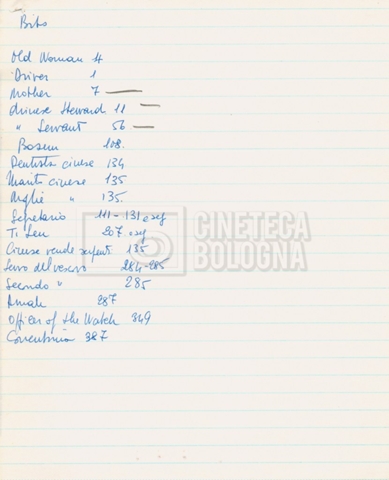 Bits
Old Woman 4
Driver 1
Mother 7
Chinese Steward 11
" Servant 56
Bosun 108.
Dentista cinese 134
Marito cinese 135
Moglie " 135.
Segretario 111 - 131 e seg
Ti Leu 207 e seg
Cinese vende serpenti 135
Servo del vescovo 284-285
Secondo " 285
Amah 287
Officer of the Watch 349
387
CINETECA
BOLOGNA